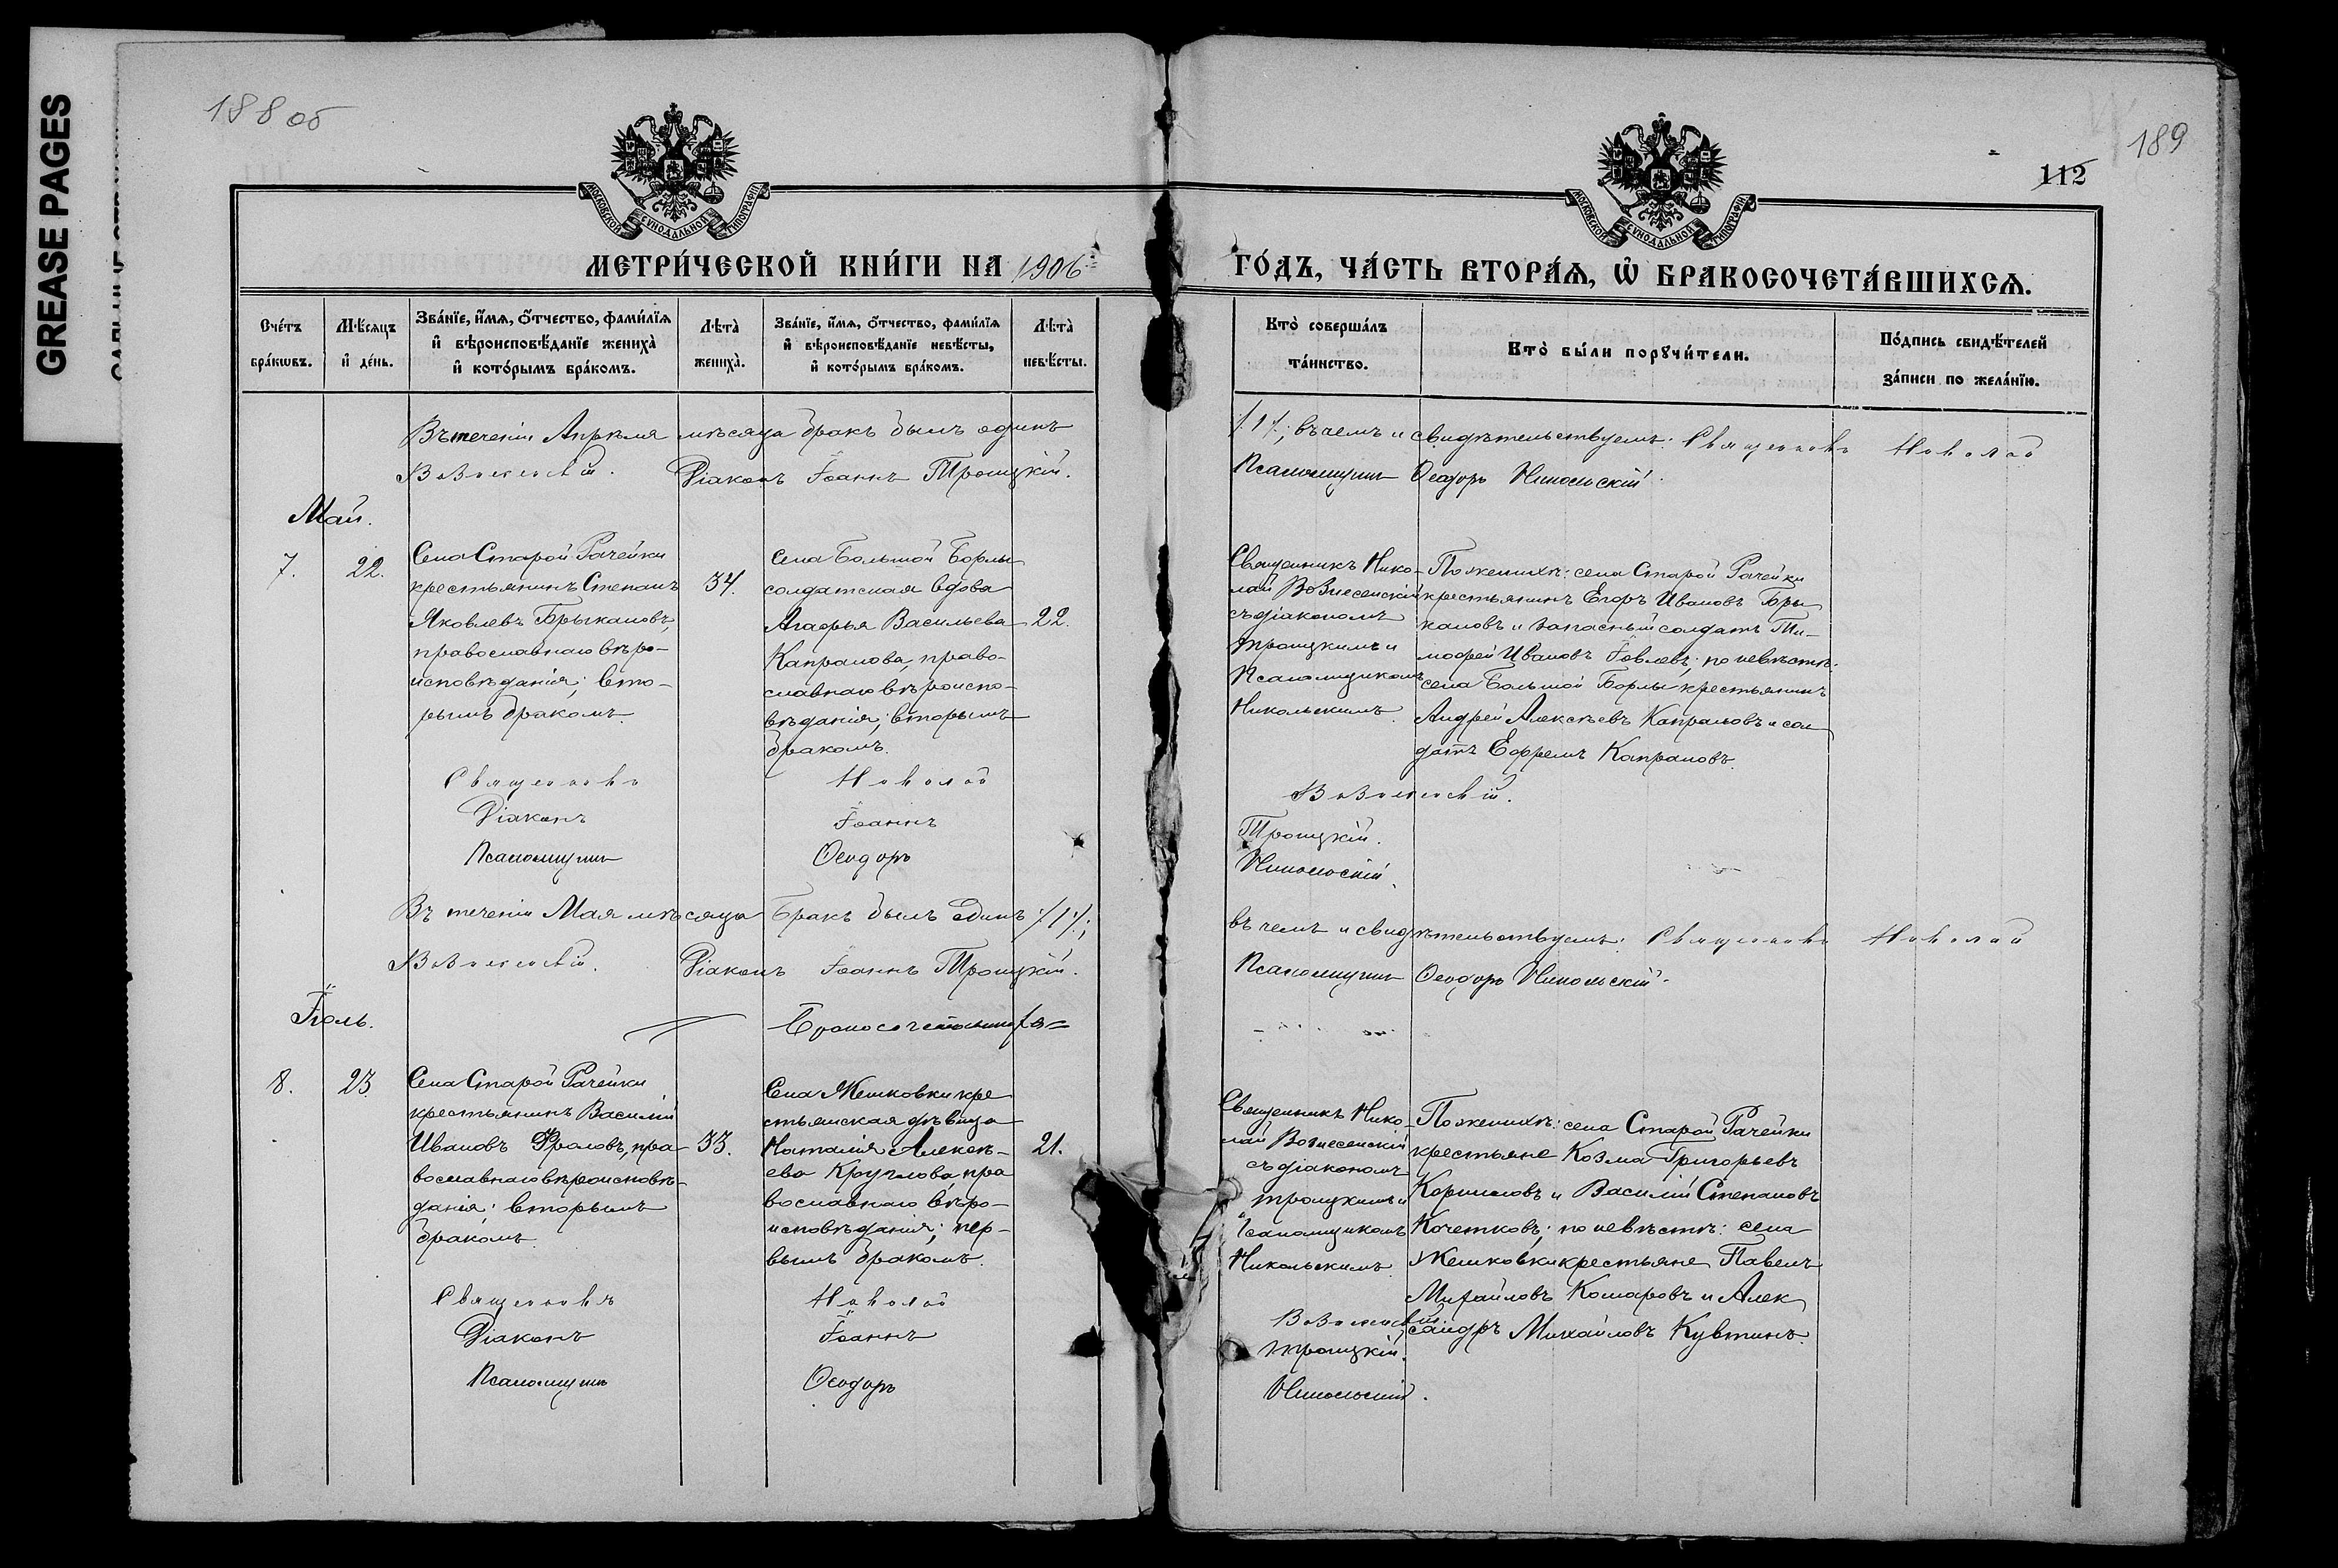 GREASE PAGES
188 об
189
112
МОСКОВСКОЙ СѴНОДАЛЬНОЙ ТИПОГРАФІИ
МОСКОВСКОЙ СѴНОДАЛЬНОЙ ТИПОГРАФІИ
МЕТРИ́ЧЕСКОЙ КНИ́ГИ НА 1906
ГО́ДЪ, ЧА́СТЬ ВТОРА́Ѧ, Ѡ БРАКОСОЧЕТА́ВШИХСѦ.
Сче́тъ
бра́кѡвъ.
Мѣ́сяцъ
и҆ де́нь.
Зва́нїе, и҆́мѧ, ѻ҆́тчество, фами́лїѧ
и҆ вѣроисповѣ́данїе жениха̀
и҆ кото́рымъ бра́комъ.
Лѣта̀
жениха̀.
Зва́нїе, и҆́мѧ, ѻ҆́тчество, фами́лїѧ
и҆ вѣроисповѣ́данїе невѣ́сты,
и҆ кото́рымъ бра́комъ.
Лѣта̀
невѣ́сты.
Кто̀ соверша́лъ
та́инство.
Кто̀ бы́ли порꙋчи́тели.
По́дпись свидѣ́телей
за́писи по жела́нїю.
Въ теченіи Апрѣля мѣсяца бракъ былъ одинъ
/.1/.; въ чемъ и свидѣтельствуемъ: Священникъ Николай
Вознесенскій. Діаконъ Іоаннъ Троицкій.
Псаломщикъ Ѳеодоръ Никольскій.
Май.
7.
22.
Села Старой Рачейки
крестьянинъ Степанъ
Яковлевъ Брыкановъ,
православнаго вѣро-
исповѣданія; вто-
рымъ бракомъ.
34.
Села Большой Борлы
солдатская вдова
Агафья Васильева
Капралова, право-
славнаго вѣроиспо-
вѣданія; вторымъ
бракомъ.
22.
Священникъ Нико-
лай Вознесенскій
съ діакономъ
Троицкимъ и
Псаломщикомъ
Никольскимъ.
По женихѣ: села Старой Рачейки
крестьянинъ Егоръ Ивановъ Бры
кановъ и запасный солдатъ Ти-
мофей Ивановъ Іовлевъ; по невѣстѣ:
села Большой Борлы крестьянинъ
Андрей Алексѣевъ Капраловъ и сол
датъ Ефремъ Капраловъ.
Священникъ Николай Вознесенскій.
Діаконъ Іоаннъ Троицкій.
Псаломщикъ Ѳеодоръ Никольскій.
Въ теченіи Мая мѣсяца бракъ былъ одинъ /.1/.;
въ чемъ и свидѣтельствуемъ: Священникъ Николай
Вознесенскій. Діаконъ Іоаннъ Троицкій.
Псаломщикъ Ѳеодоръ Никольскій.
Іюль.
8.
23.
Села Старой Рачейки
крестьянинъ Василій
Ивановъ Фроловъ, пра-
вославнаго вѣроисповѣ-
данія: вторымъ
бракомъ.
33.
Села Жемковки кре
стьянская дѣвица
Наталія Алексѣ-
ева Круглова, пра
вославнаго вѣро-
исповѣданія; пер-
вымъ бракомъ.
21.
Священникъ Нико
лай Вознесенскій
съ діакономъ
Троицкимъ и
Псаломщикомъ
Никольскимъ.
По женихѣ: села Старой Рачейки
крестьяне Козма Григорьевъ
Корниловъ и Василій Степановъ
Кочетковъ; по невѣстѣ: села
Жемковки крестьяне Павелъ
Михайловъ Комаровъ и Алек
сандръ Михайловъ Кувтинъ.
Священникъ Николай Вознесенскій.
Діаконъ Іоаннъ Троицкій.
Псаломщикъ Ѳеодоръ Никольскій.